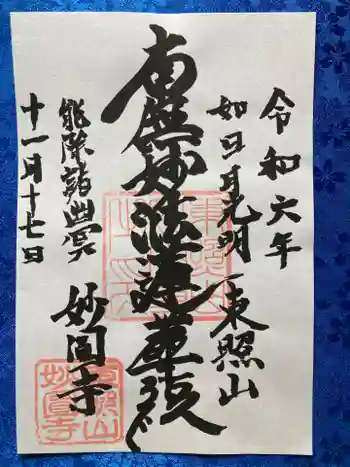 令和六年
如日月光明
東照山
南無妙法蓮華経
能除諸幽冥
妙圓寺
十一月十七日
東照山
妙圓寺